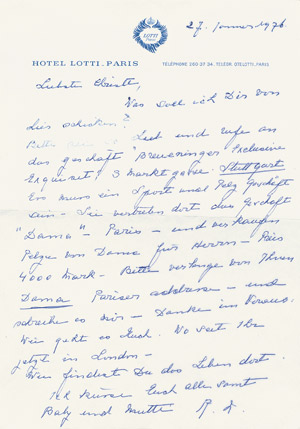 LOTTI
27. Januar 1976
HOTEL LOTTI. PARIS
TÉLÉPHONE 260-37 34. TÉLÉGR. OTELOTTI. PARIS
Liebste Christl,
Was soll ich Dir von
hier schicken?
Bitte und rufe an
das Geschäft "Breuninger Exclusive
Exquisit" 3 Marktgasse. Stuttgart
Es muss ein Sport und Pelz Geschäft
sein - Sie vertreten dort das Geschäft
"Dama" - Paris - und verkaufen
Pelze von Dama für Herrn - Preis
4000 Mark - Bitte verlange von Ihnen
Dama Pariser Adresse - und
schreibe es mir - Danke im Voraus.
Wie geht es Euch. Wo seit Ihr
jetzt in London -
Wie findest Du das Leben dort.
Ich küsse Euch alle samt
Baby und Mutti